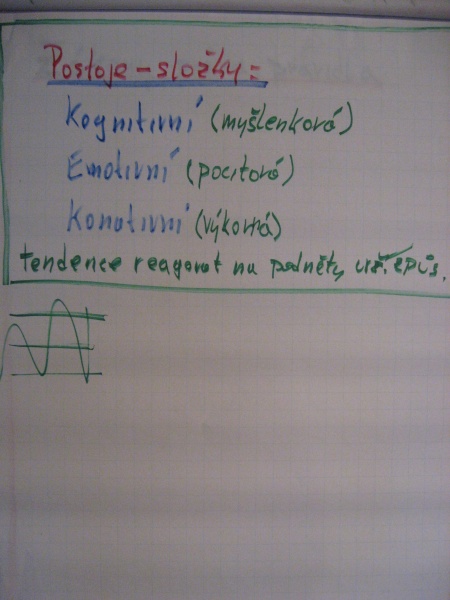 Postoje - složky =
Kognitivní (myšlenková)
Emotivní (pocitová)
Konativní (výkonná)
tendence reagovat na podněty urč. způs.